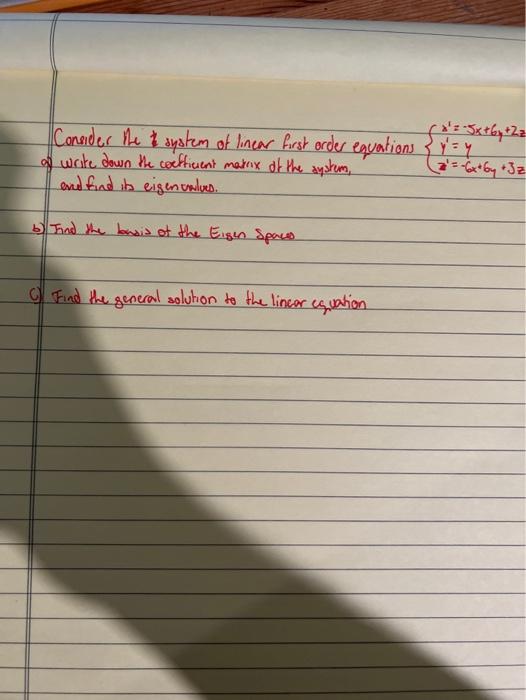 Consider the system of linear first order equations { x' = -5x+6y+2z
y' = y
z' = -6x+6y+3z
a) write down the coefficient matrix of the system,
and find its eigenvalues.
b) Find the basis of the Eigen Spaces
c) Find the general solution to the linear equation